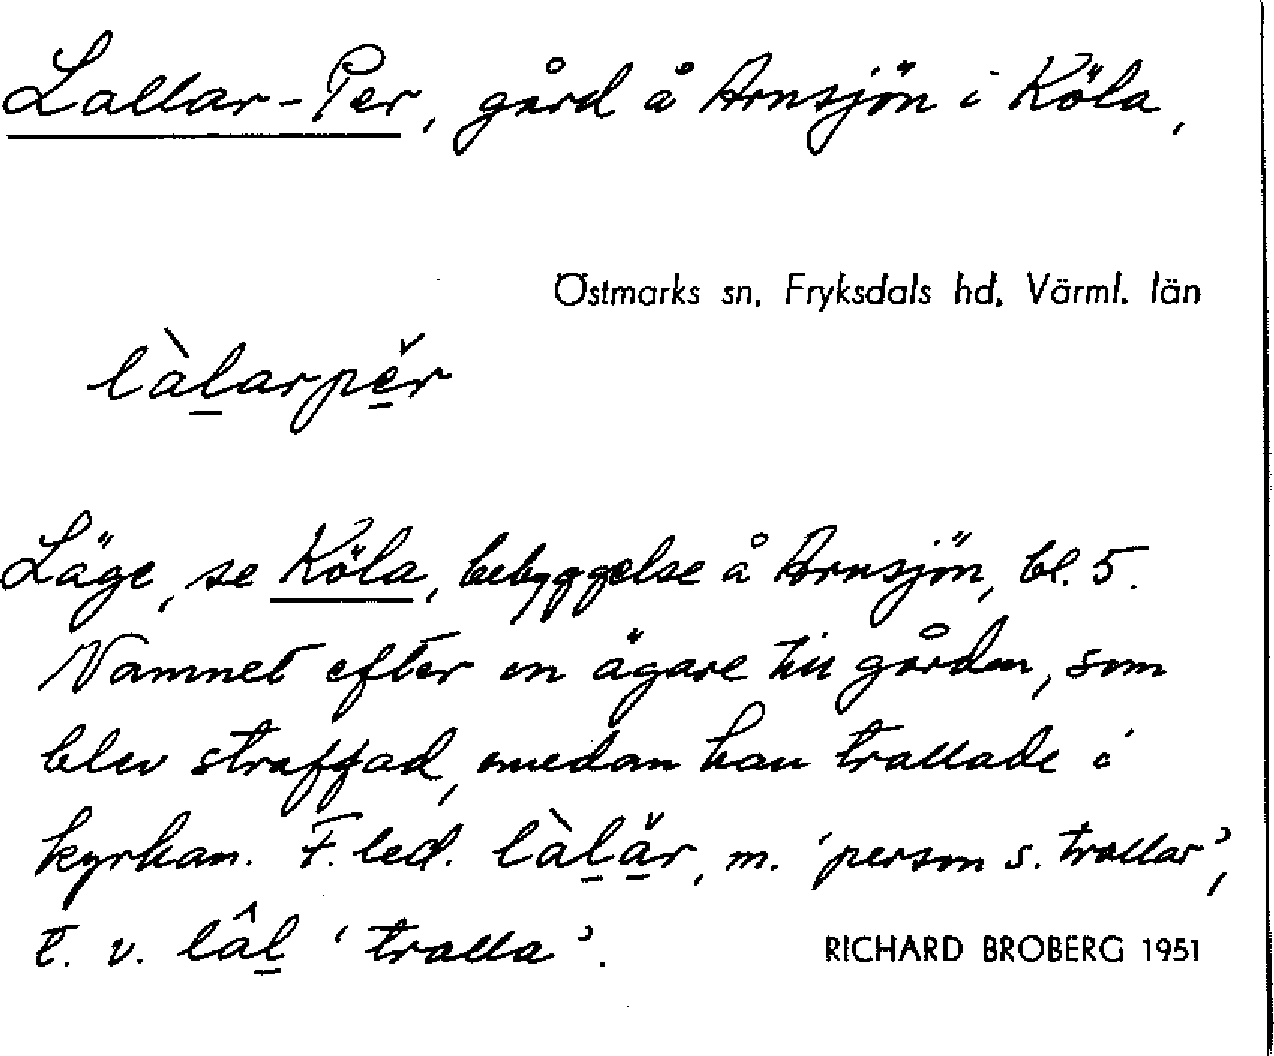 Lallar-Per, gård å Arnsjön i Köla,
Östmarks sn, Fryksdals hd, Värml. län
làl̠arpě̠r
Läge, se Köla, bebyggelse å Arnsjön, bl. 5.
Namnet efter en ägare till gården, som
blev straffad, medan han trallade i
kyrkan. F. led. làl̠ä̠̌r, m. 'person s. trallar',
t. v. lâl̠ 'tralla'.
RICHARD BROBERG 1951